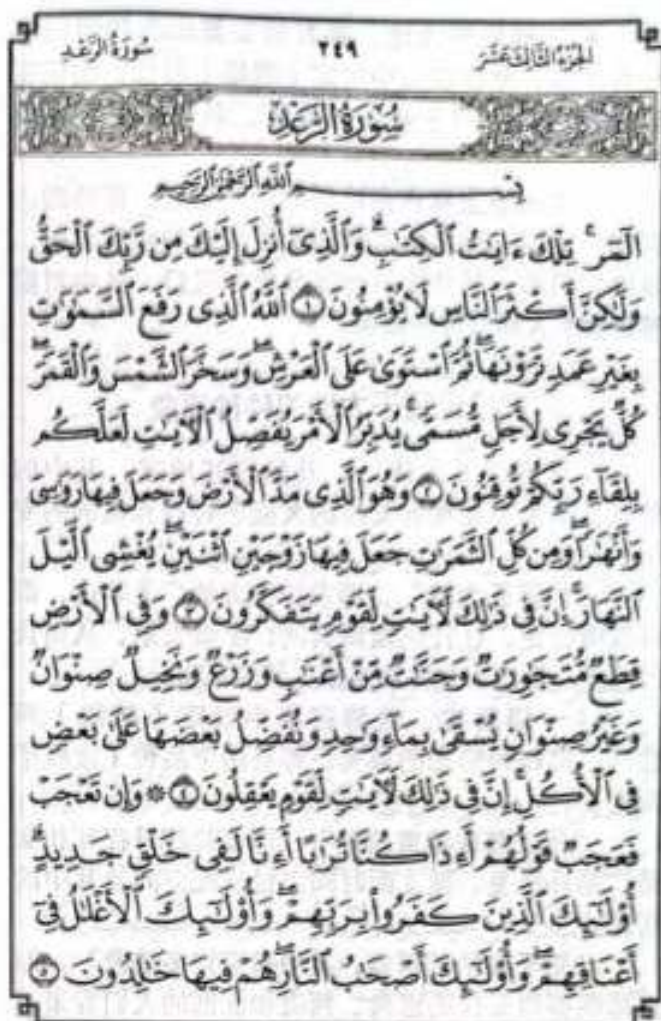 الجزء الثالث عشر ٢٤٩ سُورَةُ الرَّعْدِ
سُورَةُ الرَّعْدِ
بِسْمِ ٱللَّهِ ٱلرَّحْمَٰنِ ٱلرَّحِيمِ
الٓمٓر ۚ تِلْكَ ءَايَٰتُ ٱلْكِتَٰبِ ۗ وَٱلَّذِىٓ أُنزِلَ إِلَيْكَ مِن رَّبِّكَ ٱلْحَقُّ
وَلَٰكِنَّ أَكْثَرَ ٱلنَّاسِ لَا يُؤْمِنُونَ ١ ٱللَّهُ ٱلَّذِى رَفَعَ ٱلسَّمَٰوَٰتِ
بِغَيْرِ عَمَدٍ تَرَوْنَهَا ۖ ثُمَّ ٱسْتَوَىٰ عَلَى ٱلْعَرْشِ ۖ وَسَخَّرَ ٱلشَّمْسَ وَٱلْقَمَرَ ۖ
كُلٌّ يَجْرِى لِأَجَلٍ مُّسَمًّى ۚ يُدَبِّرُ ٱلْأَمْرَ يُفَصِّلُ ٱلْءَايَٰتِ لَعَلَّكُم
بِلِقَآءِ رَبِّكُمْ تُوقِنُونَ ٢ وَهُوَ ٱلَّذِى مَدَّ ٱلْأَرْضَ وَجَعَلَ فِيهَا رَوَٰسِىَ
وَأَنْهَٰرًا ۖ وَمِن كُلِّ ٱلثَّمَرَٰتِ جَعَلَ فِيهَا زَوْجَيْنِ ٱثْنَيْنِ ۖ يُغْشِى ٱلَّيْلَ
ٱلنَّهَارَ ۚ إِنَّ فِى ذَٰلِكَ لَءَايَٰتٍ لِّقَوْمٍ يَتَفَكَّرُونَ ٣ وَفِى ٱلْأَرْضِ
قِطَعٌ مُّتَجَٰوِرَٰتٌ وَجَنَّٰتٌ مِّنْ أَعْنَٰبٍ وَزَرْعٌ وَنَخِيلٌ صِنْوَانٌ
وَغَيْرُ صِنْوَانٍ يُسْقَىٰ بِمَآءٍ وَٰحِدٍ وَنُفَضِّلُ بَعْضَهَا عَلَىٰ بَعْضٍ
فِى ٱلْأُكُلِ ۚ إِنَّ فِى ذَٰلِكَ لَءَايَٰتٍ لِّقَوْمٍ يَعْقِلُونَ ٤ ۞ وَإِن تَعْجَبْ
فَعَجَبٌ قَوْلُهُمْ أَءِذَا كُنَّا تُرَٰبًا أَءِنَّا لَفِى خَلْقٍ جَدِيدٍ ۗ
أُو۟لَٰٓئِكَ ٱلَّذِينَ كَفَرُوا۟ بِرَبِّهِمْ ۖ وَأُو۟لَٰٓئِكَ ٱلْأَغْلَٰلُ فِىٓ
أَعْنَاقِهِمْ ۖ وَأُو۟لَٰٓئِكَ أَصْحَٰبُ ٱلنَّارِ ۖ هُمْ فِيهَا خَٰلِدُونَ ٥